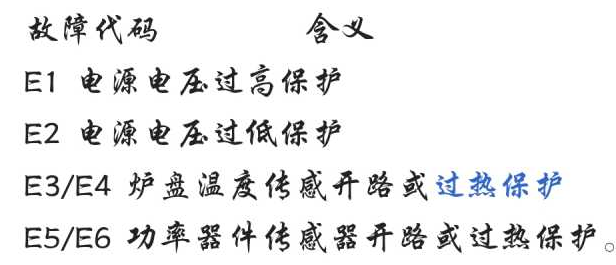 故障代码 含义
E1 电源电压过高保护
E2 电源电压过低保护
E3/E4 炉盘温度传感开路或过热保护
E5/E6 功率器件传感器开路或过热保护。